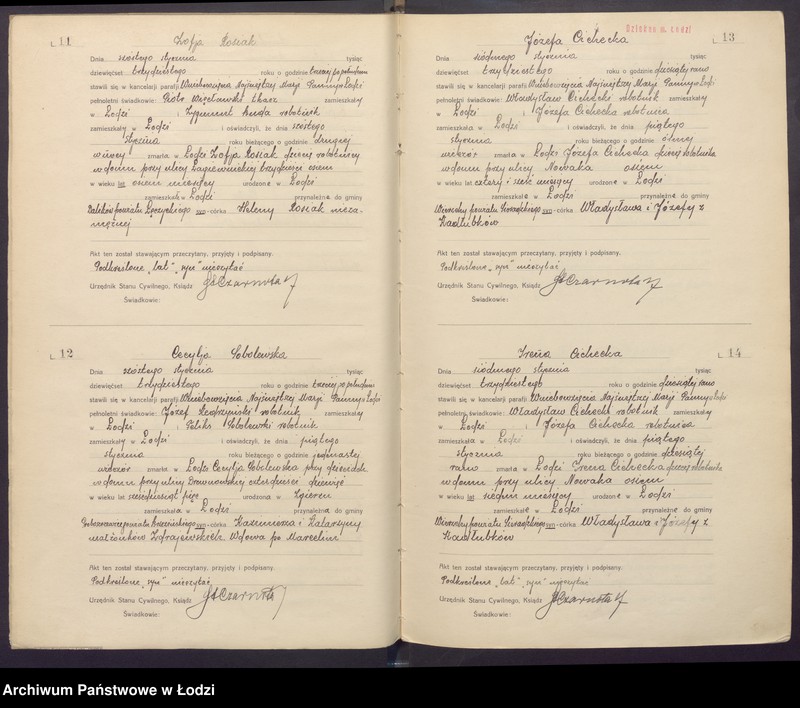 L. 11
Zofja Rosiak
Dnia szóstego stycznia tysiąc
dziewięćset trzydziestego roku o godzinie trzeciej po południu
stawili się w kancelarji parafji Wniebowzięcia Najświętszej Marji Panny w Łodzi
pełnoletni świadkowie: Piotr zamieszkały
w Łodzi i Zygmunt robotnik
zamieszkały w Łodzi i oświadczyli, że dnia szóstego
stycznia roku bieżącego o godzinie drugiej
w nocy zmarła w Łodzi Zofja Rosiak dziecię robotnicy
w domu przy ulicy Łagiewnickiej trzydzieści osiem
w wieku lat osiem miesięcy urodzone w Łodzi
zamieszkałe w Łodzi przynależne do gminy
powiatu Łęczyckiego syn-córka Heleny Rosiak nieza-
mężnej
Akt ten został stawającym przeczytany, przyjęty i podpisany.
Podkreślone „lat", „syn" nieczytać
Urzędnik Stanu Cywilnego, Ksiądz
Świadkowie:
L. 12
Cecylja Sobolewska
Dnia szóstego stycznia tysiąc
dziewięćset trzydziestego roku o godzinie trzeciej po południu
stawili się w kancelarji parafji Wniebowzięcia Najświętszej Marji Panny w Łodzi
pełnoletni świadkowie: Józef robotnik zamieszkały
w Łodzi i Feliks Sobolewski robotnik
zamieszkały w Łodzi i oświadczyli, że dnia piątego
stycznia roku bieżącego o godzinie jedenastej
wieczór zmarła w Łodzi Cecylja Sobolewska przy dzieciach
w domu przy ulicy Drewnowskiej czterdzieści dziewięć
w wieku lat sześćdziesiąt pięć urodzona w Zgierzu
zamieszkała w Łodzi przynależna do gminy
powiatu Brzezińskiego syn-córka Kazimierza i Katarzyny
małżonków Zdrajewskich. Wdowa po Marcelim
Akt ten został stawającym przeczytany, przyjęty i podpisany.
Podkreślone „syn" nieczytać
Urzędnik Stanu Cywilnego, Ksiądz
Świadkowie:
Dzielna m. Łodzi
L. 13
Józefa Cichecka
Dnia siódmego stycznia tysiąc
dziewięćset trzydziestego roku o godzinie dziesiątej rano
stawili się w kancelarji parafji Wniebowzięcia Najświętszej Marji Panny w Łodzi
pełnoletni świadkowie: Władysław Cichecki robotnik zamieszkały
w Łodzi i Józefa Cichecka robotnica
zamieszkała w Łodzi i oświadczyli, że dnia piątego
stycznia roku bieżącego o godzinie ósmej
wieczór zmarła w Łodzi Józefa Cichecka dziecię robotnika
w domu przy ulicy Nowaka osiem
w wieku lat cztery i sześć miesięcy urodzone w Łodzi
zamieszkałe w Łodzi przynależne do gminy
powiatu Sieradzkiego syn-córka Władysława i Józefy z
Kadłubków
Akt ten został stawającym przeczytany, przyjęty i podpisany.
Podkreślone „syn" nieczytać
Urzędnik Stanu Cywilnego, Ksiądz
Świadkowie:
L. 14
Irena Cichecka
Dnia siódmego stycznia tysiąc
dziewięćset trzydziestego roku o godzinie dziesiątej rano
stawili się w kancelarji parafji Wniebowzięcia Najświętszej Marji Panny w Łodzi
pełnoletni świadkowie: Władysław Cichecki robotnik zamieszkały
w Łodzi i Józefa Cichecka robotnica
zamieszkała w Łodzi i oświadczyli, że dnia piątego
stycznia roku bieżącego o godzinie dziesiątej
rano zmarła w Łodzi Irena Cichecka dziecię robotnika
w domu przy ulicy Nowaka osiem
w wieku lat siedm miesięcy urodzone w Łodzi
zamieszkałe w Łodzi przynależne do gminy
powiatu Sieradzkiego syn-córka Władysława i Józefy z
Kadłubków
Akt ten został stawającym przeczytany, przyjęty i podpisany.
Podkreślone „lat", „syn" nieczytać
Urzędnik Stanu Cywilnego, Ksiądz
Świadkowie:
Archiwum Państwowe w Łodzi